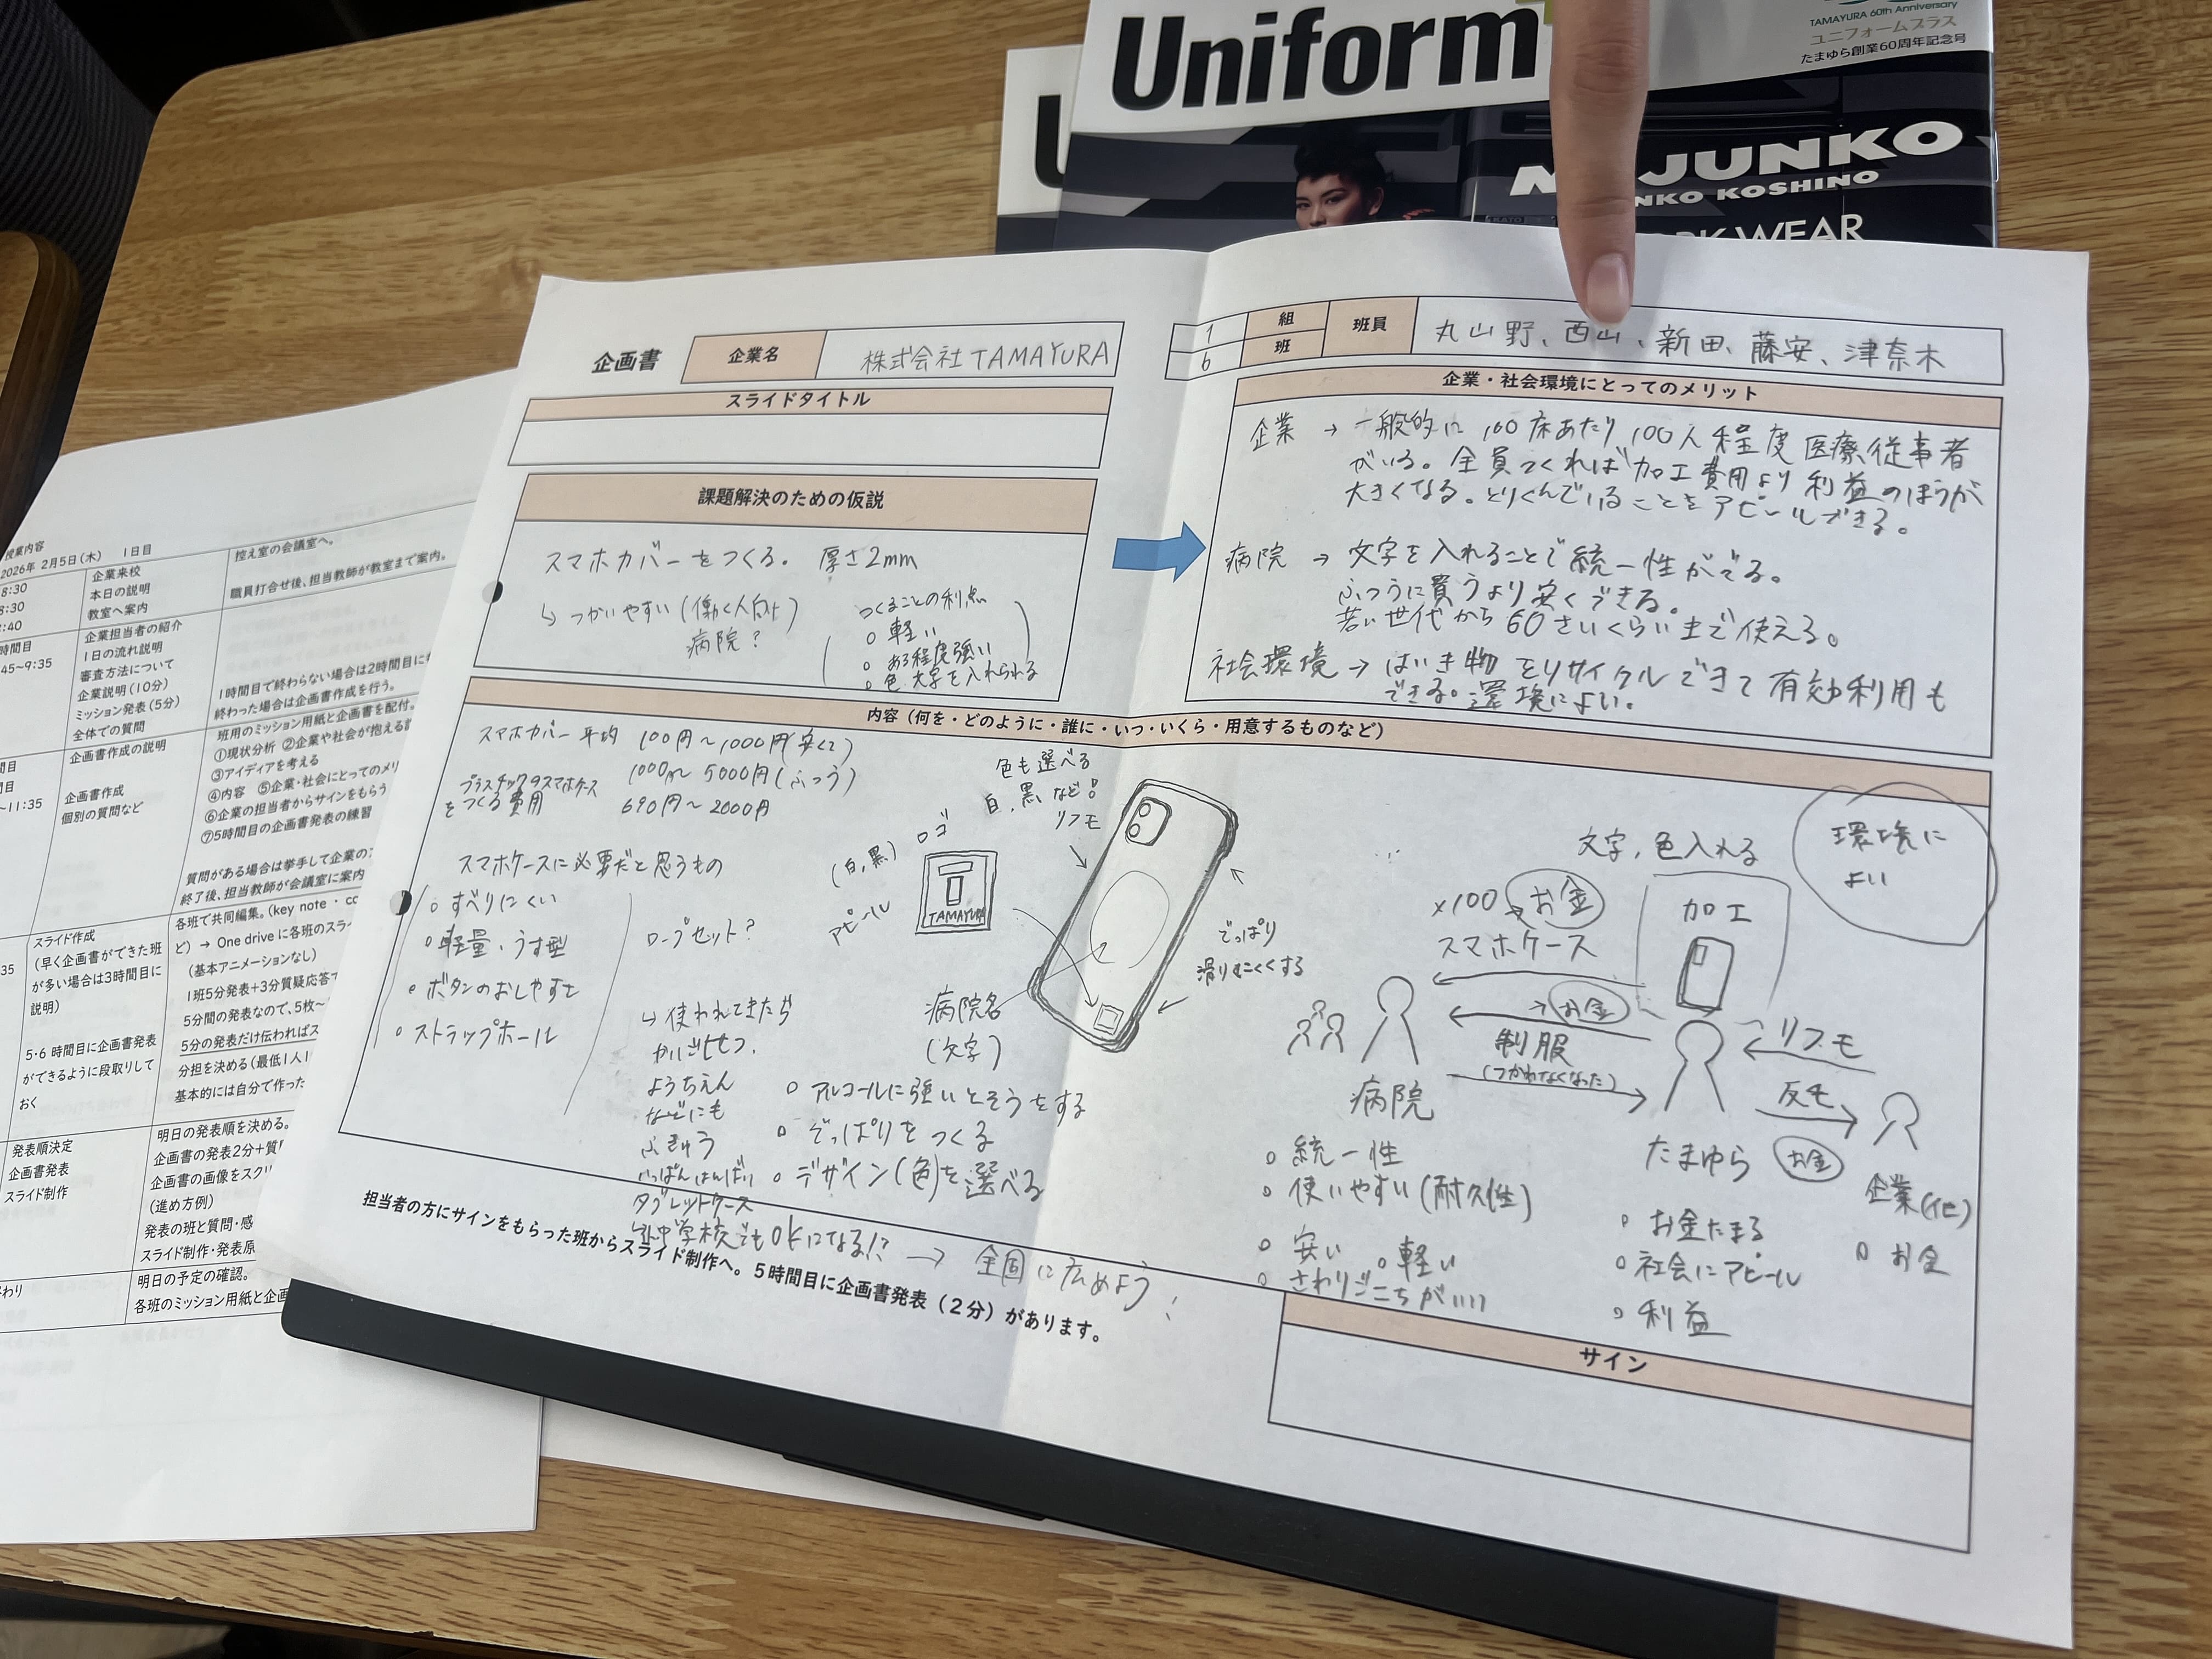 Uniform
TAMAYURA 60th Anniversary
ユニフォームプラス
たまゆら創業60周年記念号
JUNKO
NKO KOSHINO
WEAR
企画書
企業名
株式会社TAMAYURA
1
組
6
班
班員
丸山野、西山、新田、藤安、津奈木
スライドタイトル
課題解決のための仮説
スマホカバーをつくる。 厚さ2mm
↳ つかいやすい(働く人向け)
病院?
つくることの利点
○ 軽い
○ ある程度強い
○ 色 文字を入れられる
企業・社会環境にとってのメリット
企業 → 一般的に100床あたり100人程度医療従事者
がいる。全員つくれば加工費用より利益のほうが
大きくなる。とりくんでいることをアピールできる。
病院 → 文字を入れることで統一性がでる。
ふつうに買うより安くできる。
若い世代から60さいくらいまで使える。
社会環境 → はいき物をリサイクルできて有効利用も
できる。環境によい。
内容(何を・どのように・誰に・いつ・いくら・用意するものなど)
スマホカバー平均 100円〜1000円(安くて)
1000円〜5000円(ふつう)
プラスチックのスマホケース
をつくる費用 690円〜2000円
スマホケースに必要だと思うもの
○ すべりにくい
○ 軽量・うす型
○ ボタンのおしやすさ
○ ストラップホール
ロープセット?
↳ 使われてきたら
かいごしせつ、
ようちえん
などにも
ふきゅう
いっぱんはんばい
タブレットケース
小中学校でもOKになる!? → 全国に広めよう!
色も選べる
白、黒など
リフモ
ロゴ
(白,黒)
アピール
TAMAYURA
でっぱり
滑りにくくする
病院名
(文字)
○ アルコールに強いとそうをする
○ でっぱりをつくる
○ デザイン(色)を選べる
文字,色入れる
環境に
よい
×100 → お金
スマホケース
加工
→ お金
制服
(つかわなくなった)
病院
リフモ
反毛
たまゆら
お金
企業(他)
○ 統一性
○ 使いやすい(耐久性)
○ 安い ○ 軽い
○ さわりごこちがいい
○ お金たまる
○ 社会にアピール
○ 利益
○ お金
担当者の方にサインをもらった班からスライド制作へ。5時間目に企画書発表(2分)があります。
サイン
授業内容
2026年 2月5日(木) 1日目
8:30
企業来校
控え室の会議室へ。
8:30
本日の説明
:40
教室へ案内
職員打合せ後、担当教師が教室まで案内。
時間目
企業担当者の紹介
45~9:35
1日の流れ説明
審査方法について
企業説明(10分)
1時間目で終わらない場合は2時間目に
ミッション発表(5分)
終わった場合は企画書作成を行う。
全体での質問
班用のミッション用紙と企画書を配付。
企画書作成の説明
①現状分析 ②企業や社会が抱える
③アイディアを考える
~11:35
企画書作成
④内容 ⑤企業・社会にとってのメリ
個別の質問など
⑥企業の担当者からサインをもらう
⑦5時間目の企画書発表の練習
質問がある場合は挙手して企業の
終了後、担当教師が会議室に案内
35
スライド作成
各班で共同編集。(key note ・
(早く企画書ができた班
ど) → One driveに各班のスラ
が多い場合は3時間目に
(基本アニメーションなし)
説明)
1班5分発表+3分質疑応答
5分間の発表なので、5枚~
5・6時間目に企画書発表
5分の発表だけ伝わればス
ができるように段取りして
分担を決める(最低1人1
おく
基本的には自分で作った
発表順決定
明日の発表順を決める。
企画書発表
企画書の発表2分+質
スライド制作
企画書の画像をスクリ
(進め方例)
発表の班と質問・感
スライド制作・発表原
わり
明日の予定の確認。
各班のミッション用紙と企画